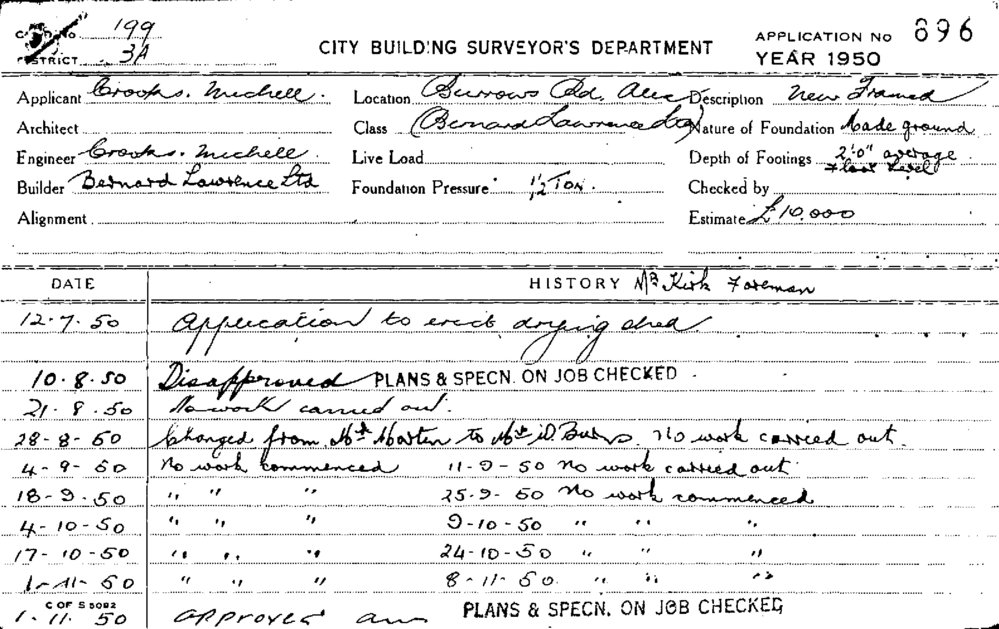 199
CITY BUILDING SURVEYOR'S DEPARTMENT
APPLICATION No 896
DISTRICT 3A
YEAR 1950
Applicant Crooks. Michell. Location Burrows Rd. Alex Description New Framed
Architect Class (Bernard Lawrence Ltd) Nature of Foundation Made ground
Engineer Crooks. Michell. Live Load Depth of Footings 2'.0" average
Floor Level
Builder Bernard Lawrence Ltd Foundation Pressure 1/2 Ton. Checked by
Alignment Estimate £10,000
DATE HISTORY Mr Kirk Foreman
12.7.50 Application to erect drying shed
10.8.50 Disapproved PLANS & SPECN. ON JOB CHECKED
21.8.50 No work carried out.
28-8-50 Changed from Mr Morten to Mr D. Burns. No work carried out.
4-9-50 No work commenced 11-9-50 No work carried out
18-9.50 " " " 25.9-50 No work commenced
4-10-50 " " " 9-10-50 " " "
17-10-50 " " " 24-10-50 " " "
1-11-50 " " " 8-11-50. " " "
C OF S 5092
1.11.50 APPROVED PLANS & SPECN. ON JOB CHECKED